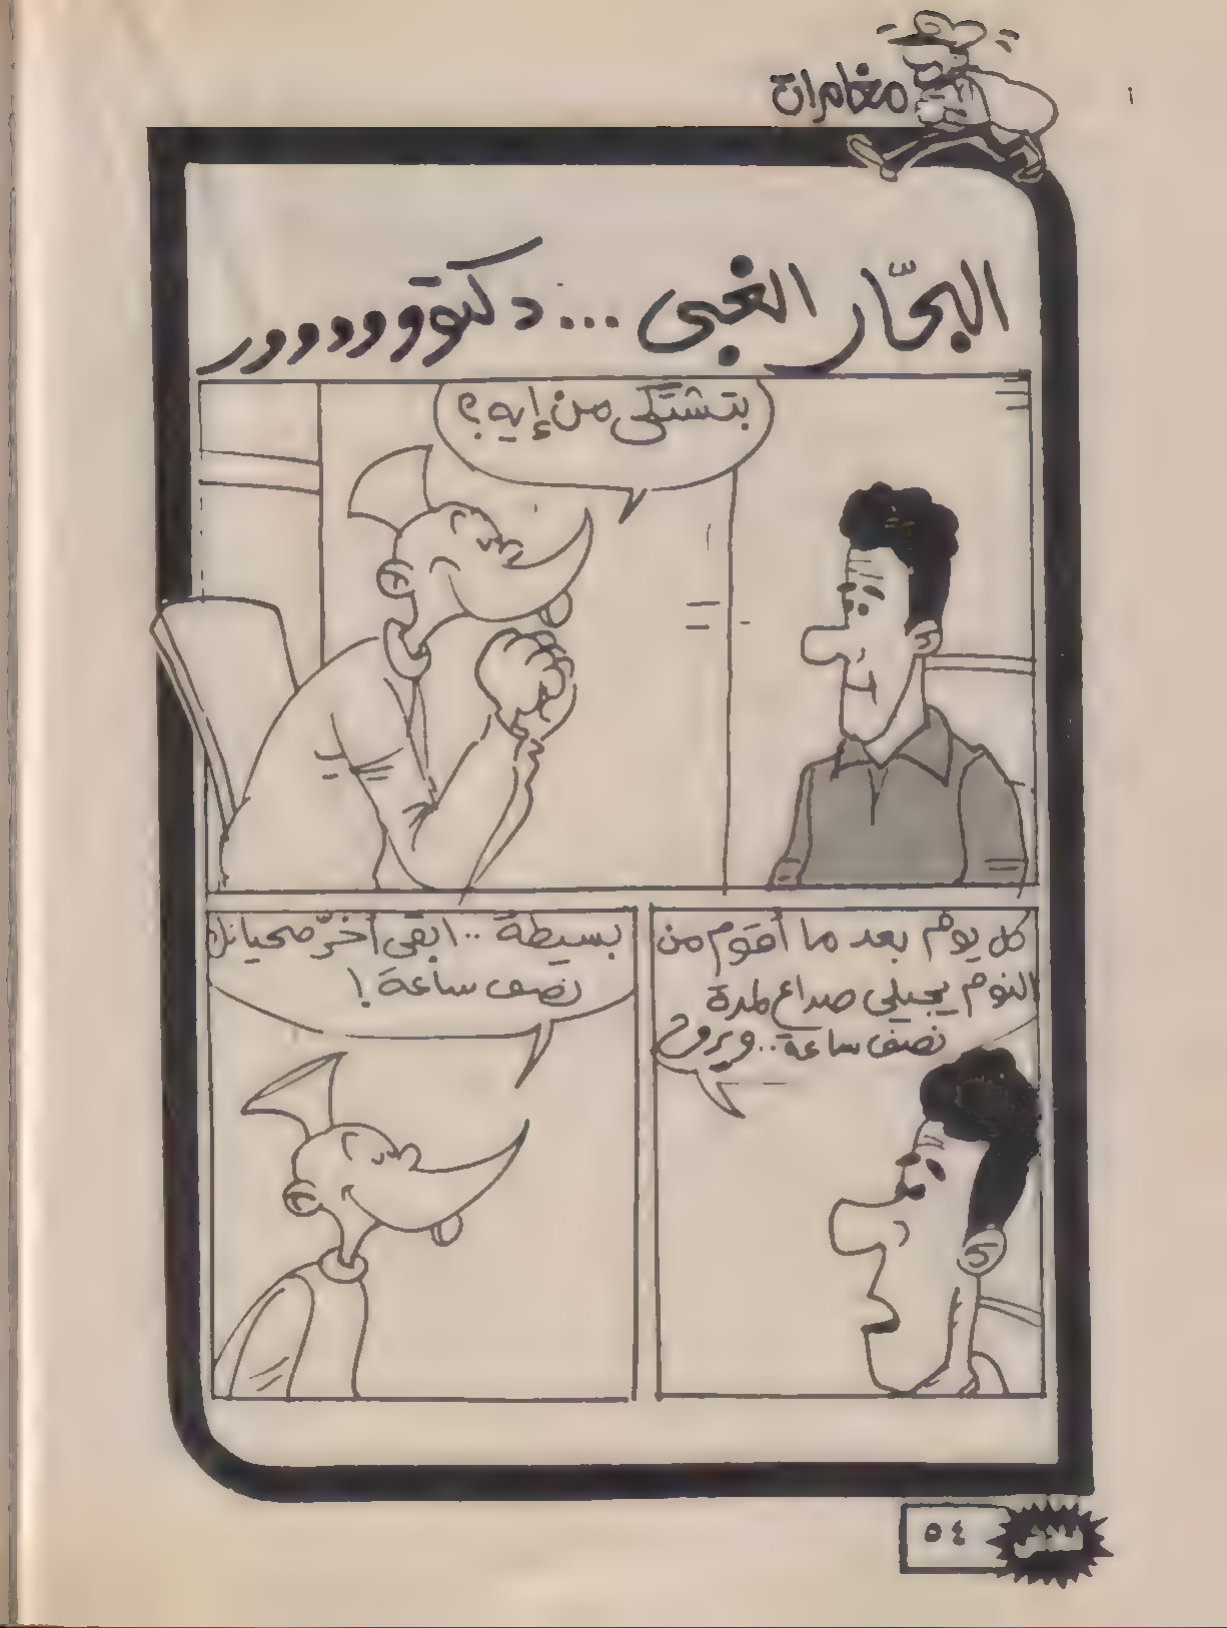 مغامرات
البحّار الغبى ... دكتووودوور
بتشتكى من إيه؟
كل يوم بعد ما أقوم من
النوم يجيلى صداع لمدة
نصف ساعة.. ويروح
بسيطة.. ابقى أخّر صحيانك
نصف ساعة!
فلاش
٥٤